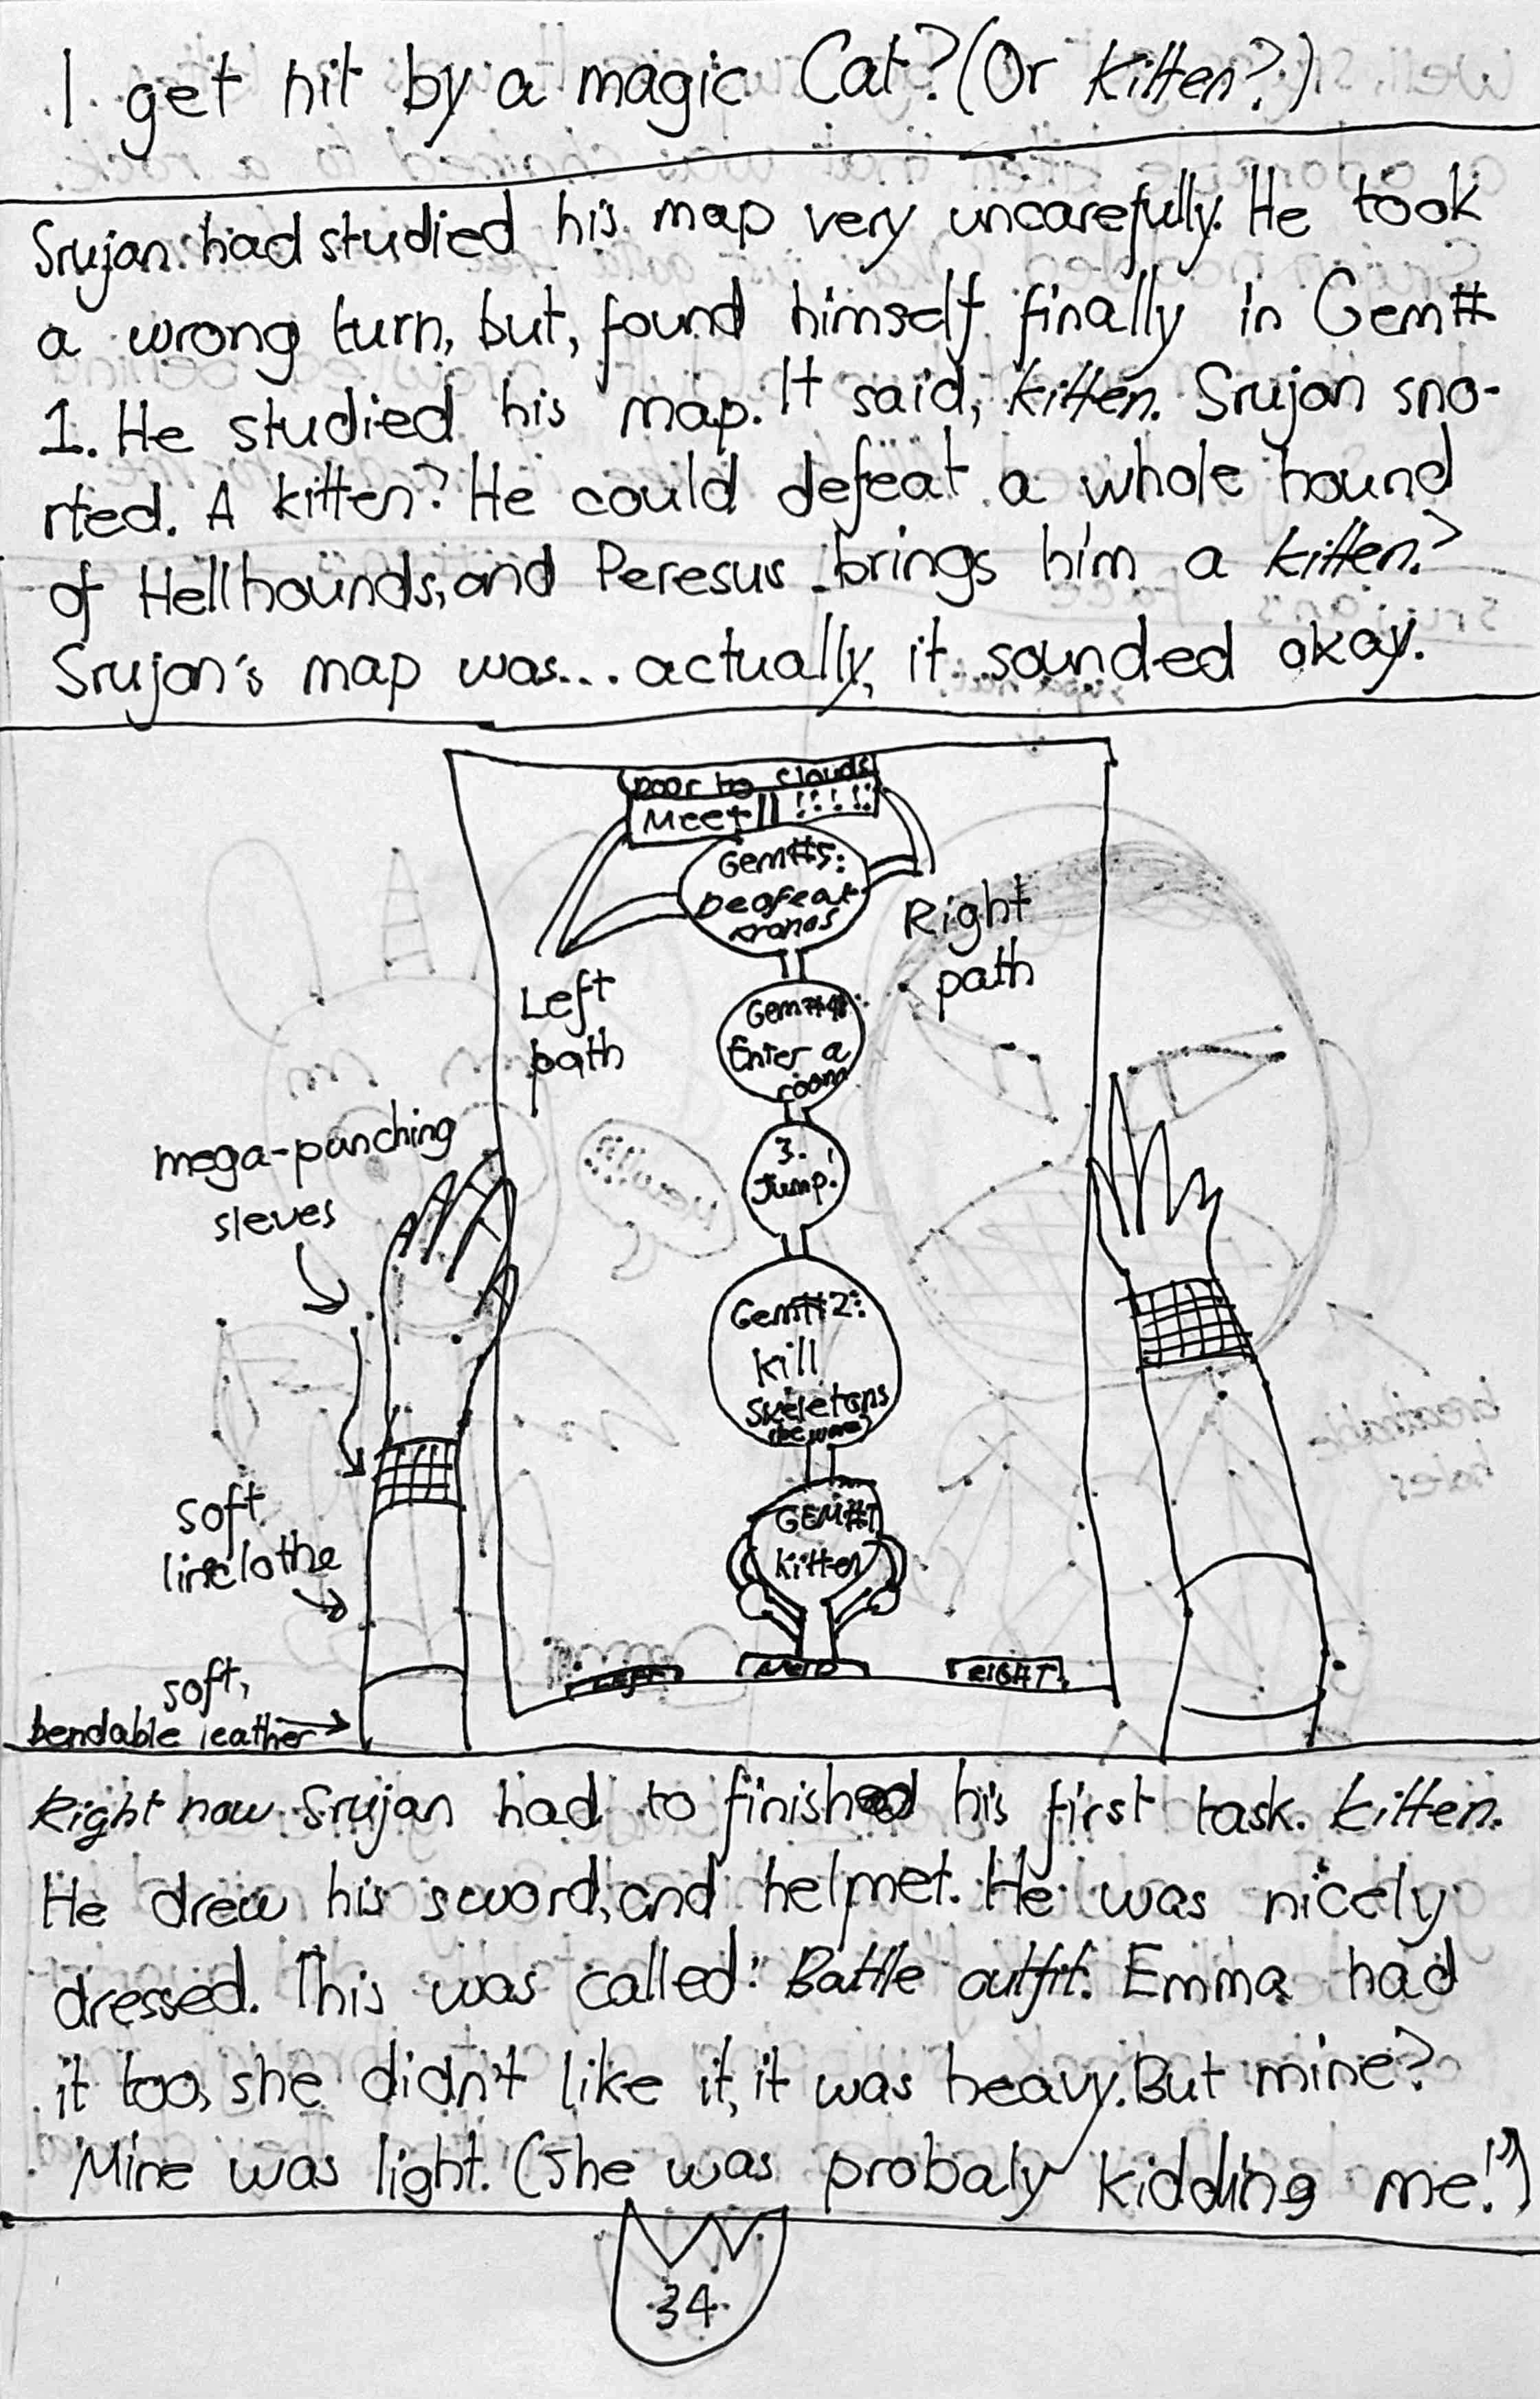 I get hit by a magic Cat? (Or kitten?)
Srujan had studied his map very uncarefully. He took
a wrong turn, but, found himself finally in Gem#
1. He studied his map. It said, kitten. Srujan sno-
rted. A kitten? He could defeat a whole hound
of Hellhounds, and Peresus brings him a kitten?
Srujan's map was... actually, it sounded okay.
Door to clouds
Meet!! !!!!!
Gem#5:
Deafeat
kronos
Right
path
Left
path
Gem#4:
Enter a
room
3.
Jump!
mega-punching
sleves
Gem#2:
kill
skeletons
(beware)
GEM#1
kitten
soft
lineclothe
soft,
bendable leather
LEFT
RIGHT
Right now Srujan had to finish his first task. kitten.
He drew his sword, and helmet. He was nicely
dressed. This was called: Battle outfit. Emma had
it too, she didn't like it, it was heavy. But mine?
Mine was light. (She was probaly kidding me!?)
34